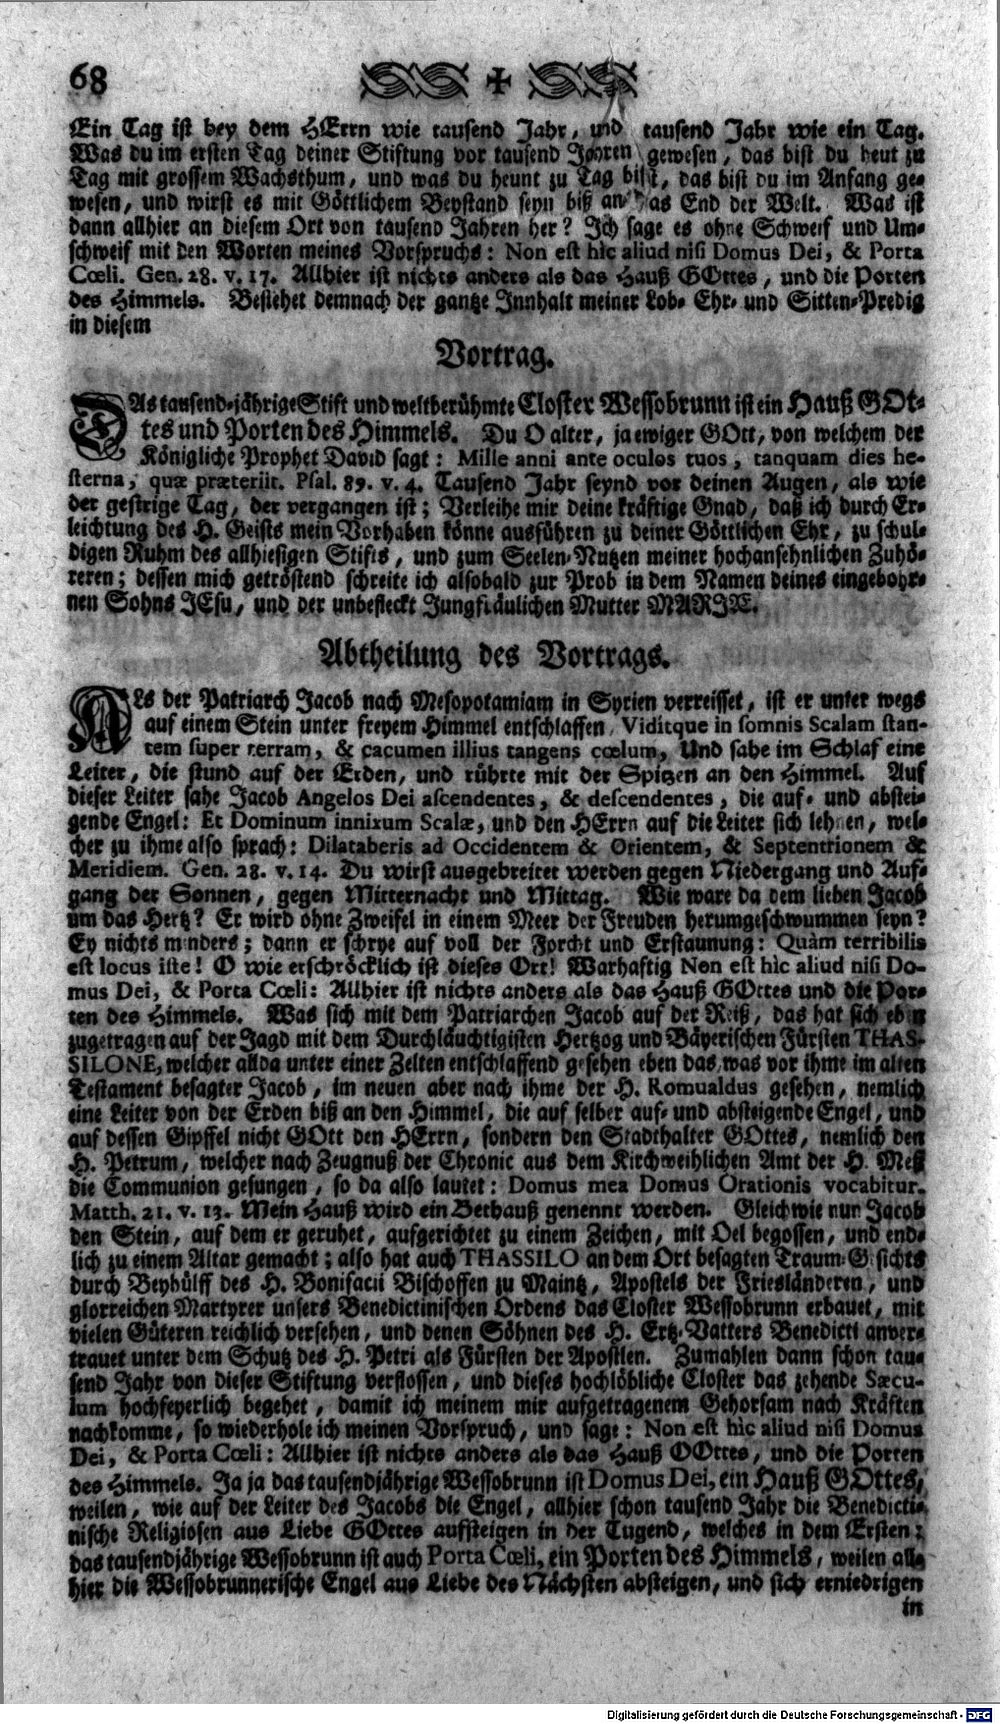 68
Ein Tag ist bey dem HErrn wie tausend Jahr, und tausend Jahr wie ein Tag.
Was du im ersten Tag deiner Stiftung vor tausend Jahren gewesen, das bist du heut zu
Tag mit grossem Wachsthum, und was du heunt zu Tag bist, das bist du im Anfang ge-
wesen, und wirst es mit Göttlichem Beystand seyn biß an das End der Welt. Was ist
dann allhier an diesem Ort von tausend Jahren her? Ich sage es ohne Schweif und Um-
schweif mit den Worten meines Vorspruchs: Non est hìc aliud nisi Domus Dei, & Porta
Cœli. Gen. 28. v. 17. Allhier ist nichts anders als das Hauß GOttes, und die Porten
des Himmels. Bestehet demnach der gantze Innhalt meiner Lob- Ehr- und Sitten-Predig
in diesem
Vortrag.
DAs tausend-jährige Stift und weltberühmte Closter Wessobrunn ist ein Hauß GOt-
tes und Porten des Himmels. Du O alter, ja ewiger GOtt, von welchem der
Königliche Prophet David sagt: Mille anni ante oculos tuos, tanquam dies he-
sterna, quæ præteriit. Psal. 89. v. 4. Tausend Jahr seynd vor deinen Augen, als wie
der gestrige Tag, der vergangen ist; Verleihe mir deine kräftige Gnad, daß ich durch Er-
leichtung des H. Geists mein Vorhaben könne ausführen zu deiner Göttlichen Ehr, zu schul-
digen Ruhm des allhiesigen Stifts, und zum Seelen-Nutzen meiner hochansehnlichen Zuhö-
reren; dessen mich getröstend schreite ich alsobald zur Prob in dem Namen deines eingebohr-
nen Sohns JEsu, und der unbefleckt Jungfräulichen Mutter MARIÆ.
Abtheilung des Vortrags.
ALs der Patriarch Jacob nach Mesopotamiam in Syrien verreisset, ist er unter wegs
auf einem Stein unter freyem Himmel entschlaffen, Viditque in somnis Scalam stan-
tem super terram, & cacumen illius tangens cœlum, Und sahe im Schlaf eine
Leiter, die stund auf der Erden, und rührte mit der Spitzen an den Himmel. Auf
dieser Leiter sahe Jacob Angelos Dei ascendentes, & descendentes, die auf- und abstei-
gende Engel: Et Dominum innixum Scalæ, und den HErrn auf die Leiter sich lehnen, wel-
cher zu ihme also sprach: Dilataberis ad Occidentem & Orientem, & Septentrionem &
Meridiem. Gen. 28. v. 14. Du wirst ausgebreitet werden gegen Niedergang und Auf-
gang der Sonnen, gegen Mitternacht und Mittag. Wie ware da dem lieben Jacob
um das Hertz? Er wird ohne Zweifel in einem Meer der Freuden herumgeschwummen seyn?
Ey nichts minders; dann er schrye auf voll der Forcht und Erstaunung: Quàm terribilis
est locus iste! O wie erschröcklich ist dieses Ort! Warhaftig Non est hìc aliud nisi Do-
mus Dei, & Porta Cœli: Allhier ist nichts anders als das Hauß GOttes und die Por-
ten des Himmels. Was sich mit dem Patriarchen Jacob auf der Reiß, das hat sich eben
zugetragen auf der Jagd mit dem Durchläuchtigisten Hertzog und Bäyerischen Fürsten THAS-
SILONE, welcher allda unter einer Zelten entschlaffend gesehen eben das, was vor ihme im alten
Testament besagter Jacob, im neuen aber nach ihme der H. Romualdus gesehen, nemlich
eine Leiter von der Erden biß an den Himmel, die auf selber auf- und absteigende Engel, und
auf dessen Gipffel nicht GOtt den HErrn, sondern den Stadthalter GOttes, nemlich den
H. Petrum, welcher nach Zeugnuß der Chronic aus dem Kirchweihlichen Amt der H. Meß
die Communion gesungen, so da also lautet: Domus mea Domus Orationis vocabitur.
Matth. 21. v. 13. Mein Hauß wird ein Bethauß genennt werden. Gleichwie nun Jacob
den Stein, auf dem er geruhet, aufgerichtet zu einem Zeichen, mit Oel begossen, und end-
lich zu einem Altar gemacht; also hat auch THASSILO an dem Ort besagten Traum-Gesichts
durch Beyhülff des H. Bonifacii Bischoffen zu Maintz, Apostels der Friesländeren, und
glorreichen Martyrer unsers Benedictinischen Ordens das Closter Wessobrunn erbauet, mit
vielen Güteren reichlich versehen, und denen Söhnen des H. Ertz-Vatters Benedicti anver-
trauet unter dem Schutz des H. Petri als Fürsten der Apostlen. Zumahlen dann schon tau-
send Jahr von dieser Stiftung verflossen, und dieses hochlöbliche Closter das zehende Sæcu-
lum hochfeyerlich begehet, damit ich meinem mir aufgetragenem Gehorsam nach Kräften
nachkomme, so wiederhole ich meinen Vorspruch, und sage: Non est hìc aliud nisi Domus
Dei, & Porta Cœli: Allhier ist nichts anders als das Hauß GOttes, und die Porten
des Himmels. Ja ja das tausendjährige Wessobrunn ist Domus Dei, ein Hauß GOttes,
weilen, wie auf der Leiter des Jacobs die Engel, allhier schon tausend Jahr die Benedicti-
nische Religiosen aus Liebe GOttes aufsteigen in der Tugend, welches in dem Ersten;
das tausendjährige Wessobrunn ist auch Porta Cœli, ein Porten des Himmels, weilen all-
hier die Wessobrunnerische Engel aus Liebe des Nächsten absteigen, und sich erniedrigen
in
Digitalisierung gefördert durch die Deutsche Forschungsgemeinschaft - DFG